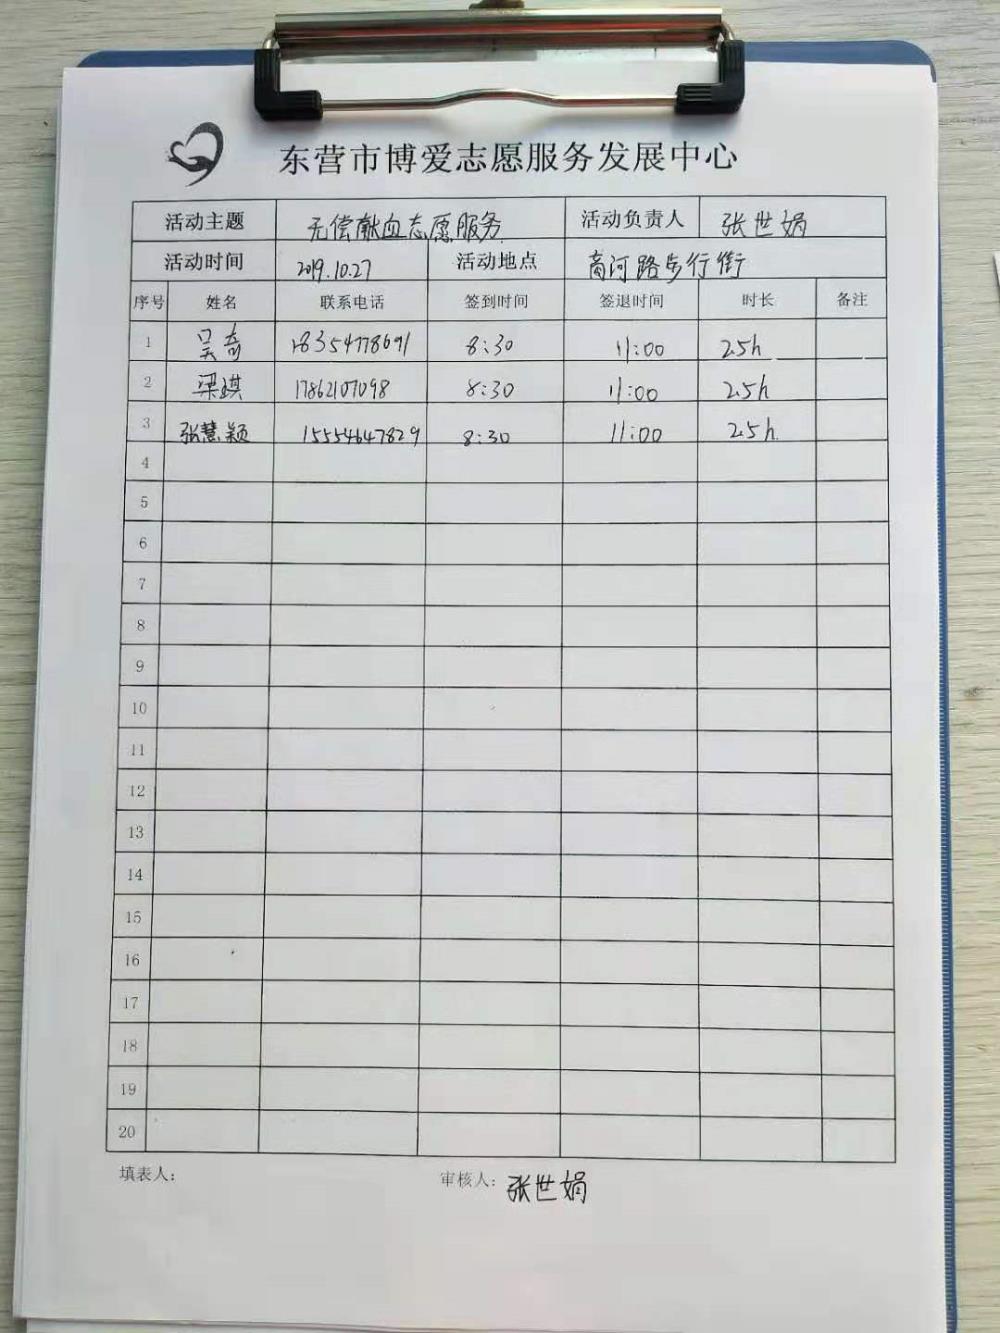 东营市博爱志愿服务发展中心
活动主题 无偿献血志愿服务 活动负责人 张世娟
活动时间 2019.10.27 活动地点 商河路步行街
序号 姓名 联系电话 签到时间 签退时间 时长 备注
1 吴奇 18354778691 8:30 11:00 2.5h
2 梁琪 17862107098 8:30 11:00 2.5h
3 张慧颖 15554647829 8:30 11:00 2.5h
4
5
6
7
8
9
10
11
12
13
14
15
16
17
18
19
20
填表人: 审核人: 张世娟